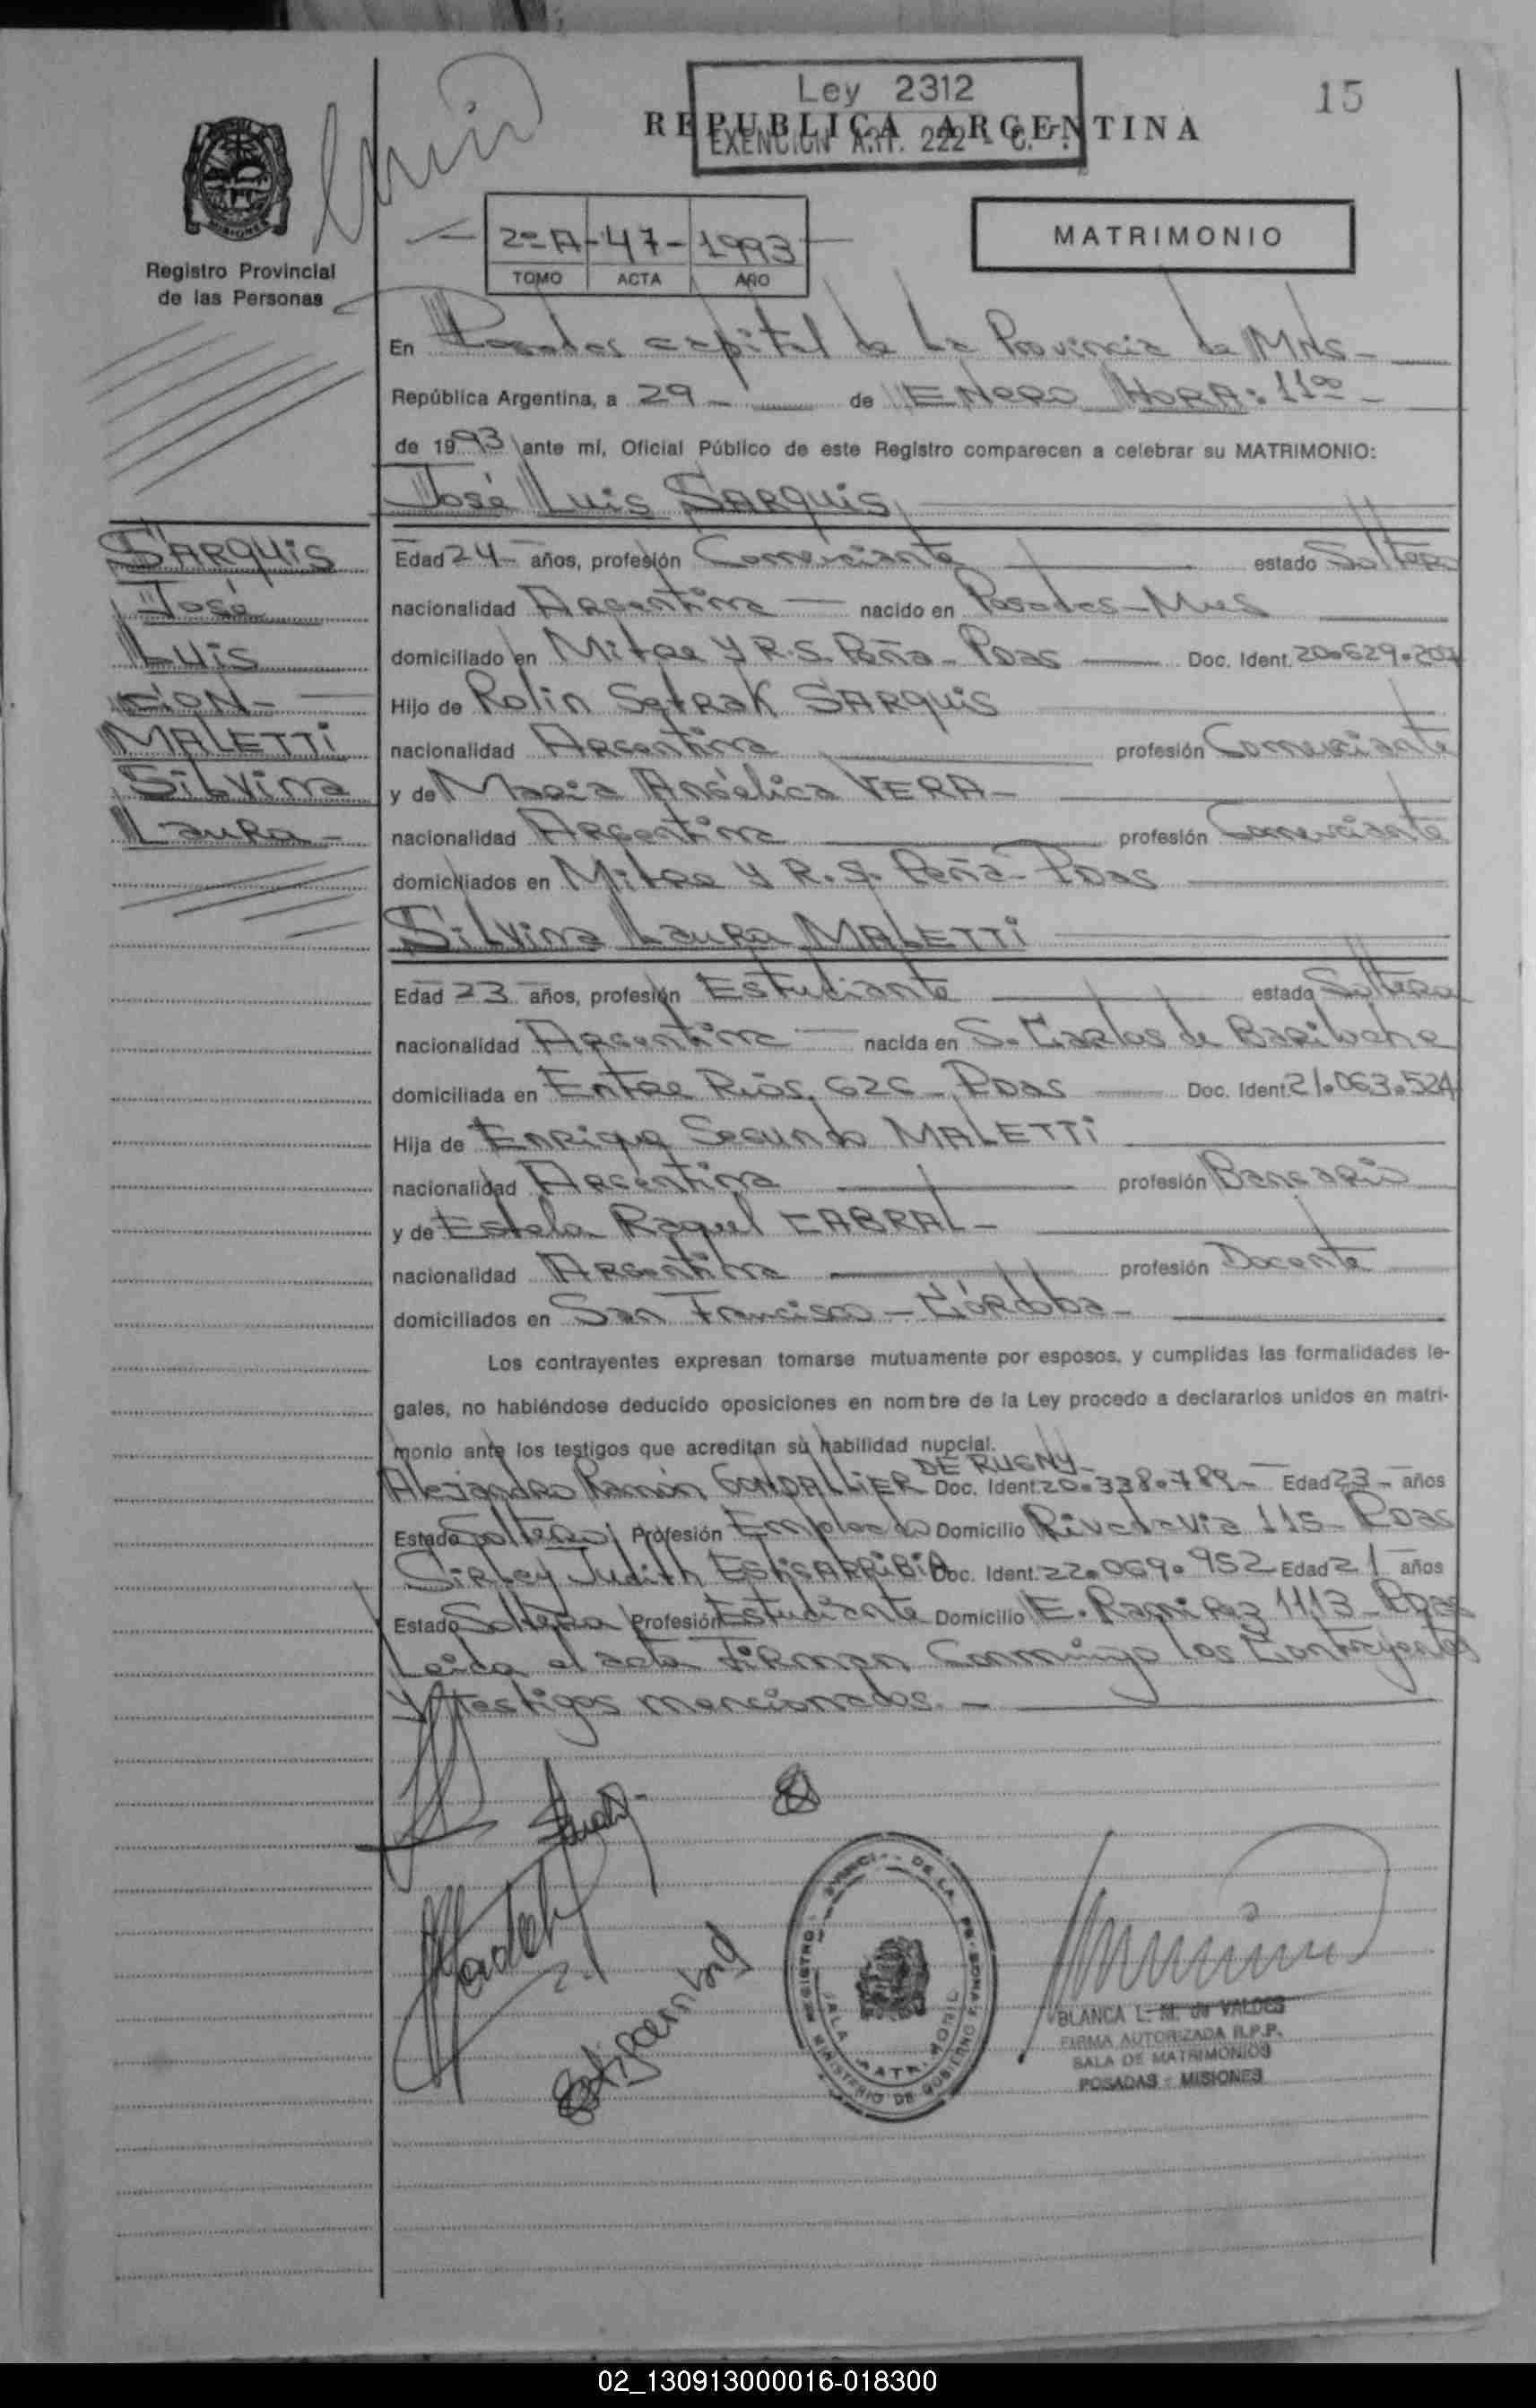 Ley 2312
15
REPUBLICA ARGENTINA
EXENCION ART. 222 - C. F.
MISIONES
Registro Provincial
de las Personas
2º A - 47 - 1993
TOMO ACTA AÑO
MATRIMONIO
En Posadas capital de la Provincia de Mnes -
República Argentina, a 29 - de ENERO HORA: 11 00 -
de 1993 ante mí, Oficial Público de este Registro comparecen a celebrar su MATRIMONIO:
José Luis SARQUIS
SARQUIS
José
Luis
CON -
MALETTI
Silvina
Laura -
Edad 24 - años, profesión Comerciante estado Soltero
nacionalidad Argentina nacido en Posadas - Mnes
domiciliado en Mitre y R.S. Peña - Pdas Doc. Ident. 20.629.207
Hijo de Rolin Satrak SARQUIS
nacionalidad Argentina profesión Comerciante
y de Maria Angélica VERA -
nacionalidad Argentina profesión Comerciante
domiciliados en Mitre y R.S. Peña - Pdas
Silvina Laura MALETTI
Edad 23 años, profesión Estudiante estado Soltera
nacionalidad Argentina nacida en S. Carlos de Bariloche
domiciliada en Entre Ríos 626 - Pdas Doc. Ident. 21.063.524
Hija de Enrique Segundo MALETTI
nacionalidad Argentina profesión Bancario
y de Estela Raquel CABRAL -
nacionalidad Argentina profesión Docente
domiciliados en San Francisco - Córdoba -
Los contrayentes expresan tomarse mutuamente por esposos, y cumplidas las formalidades le-
gales, no habiéndose deducido oposiciones en nombre de la Ley procedo a declararlos unidos en matri-
monio ante los testigos que acreditan su habilidad nupcial.
DE RUGNY -
Alejandro Ramón GONDALLIER Doc. Ident. 20.338.789 - Edad 23 - años
Estado Soltero Profesión Empleado Domicilio Rivadavia 115 - Pdas
Sirley Judith ESTIGARRIBIA Doc. Ident. 22.069.952 Edad 21 años
Estado Soltera Profesión Estudiante Domicilio E. Ramirez 1113 - Pdas
Leida el acta firman Conmingo los Contrayentes
y testigos mencionados. -
REGISTRO PROVINCIAL DE LAS PERSONAS
SALA MATRIMONIAL
MINISTERIO DE GOBIERNO
BLANCA L. M. de VALDES
FIRMA AUTORIZADA R.P.P.
SALA DE MATRIMONIOS
POSADAS - MISIONES
02_130913000016-018300